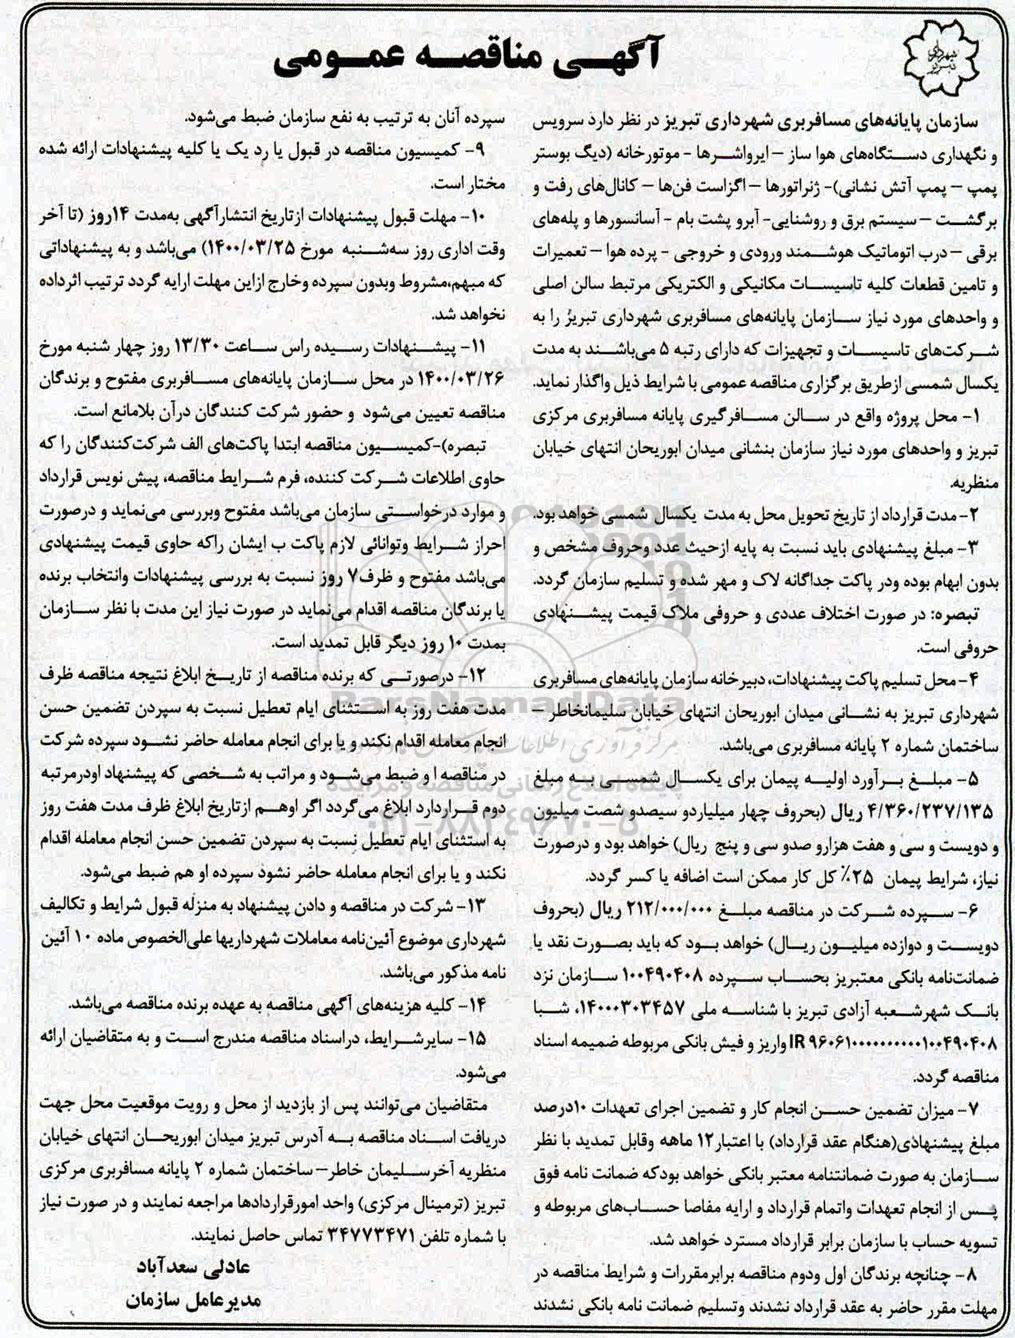 شهرداری تبریز
آگهی مناقصه عمومی
سازمان پایانه‌های مسافربری شهرداری تبریز در نظر دارد سرویس
و نگهداری دستگاه‌های هوا ساز – ایرواشرها - موتورخانه (دیگ بوستر
پمپ – پمپ آتش نشانی)- ژنراتورها – اگزاست فن‌ها – کانال‌های رفت و
برگشت – سیستم برق و روشنایی- آبرو پشت بام - آسانسورها و پله‌های
برقی – درب اتوماتیک هوشمند ورودی و خروجی - پرده هوا – تعمیرات
و تامین قطعات کلیه تاسیسات مکانیکی و الکتریکی مرتبط سالن اصلی
و واحدهای مورد نیاز سازمان پایانه‌های مسافربری شهرداری تبریز را به
شرکت‌های تاسیسات و تجهیزات که دارای رتبه ۵ می‌باشند به مدت
یکسال شمسی ازطریق برگزاری مناقصه عمومی با شرایط ذیل واگذار نماید.
۱- محل پروژه واقع در سالن مسافرگیری پایانه مسافربری مرکزی
تبریز و واحدهای مورد نیاز سازمان بنشانی میدان ابوریحان انتهای خیابان
منظریه.
۲- مدت قرارداد از تاریخ تحویل محل به مدت یکسال شمسی خواهد بود.
۳- مبلغ پیشنهادی باید نسبت به پایه ازحیث عدد وحروف مشخص و
بدون ابهام بوده ودر پاکت جداگانه لاک و مهر شده و تسلیم سازمان گردد.
تبصره: در صورت اختلاف عددی و حروفی ملاک قیمت پیشنهادی
حروفی است.
۴- محل تسلیم پاکت پیشنهادات، دبیرخانه سازمان پایانه‌های مسافربری
شهرداری تبریز به نشانی میدان ابوریحان انتهای خیابان سلیمانخاطر –
ساختمان شماره ۲ پایانه مسافربری می‌باشد.
۵- مبلغ برآورد اولیه پیمان برای یکسال شمسی به مبلغ
۴/۳۶۰/۲۳۷/۱۳۵ ریال (بحروف چهار میلیاردو سیصدو شصت میلیون
و دویست و سی و هفت هزارو صدو سی و پنج ریال) خواهد بود و درصورت
نیاز، شرایط پیمان ۲۵٪ کل کار ممکن است اضافه یا کسر گردد.
۶- سپرده شرکت در مناقصه مبلغ ۲۱۲/۰۰۰/۰۰۰ ریال (بحروف
دویست و دوازده میلیون ریال) خواهد بود که باید بصورت نقد یا
ضمانت‌نامه بانکی معتبریز بحساب سپرده ۱۰۰۴۹۰۴۰۸ سازمان نزد
بانک شهرشعبه آزادی تبریز با شناسه ملی ۱۴۰۰۰۳۰۳۴۵۷، شبا
IR ۹۶۰۶۱۰۰۰۰۰۰۰۰۰۱۰۰۴۹۰۴۰۸ واریز و فیش بانکی مربوطه ضمیمه اسناد
مناقصه گردد.
۷- میزان تضمین حسن انجام کار و تضمین اجرای تعهدات ۱۰درصد
مبلغ پیشنهادی(هنگام عقد قرارداد) با اعتبار۱۲ ماهه وقابل تمدید با نظر
سازمان به صورت ضمانتنامه معتبر بانکی خواهد بودکه ضمانت نامه فوق
پس از انجام تعهدات واتمام قرارداد و ارایه مفاصا حساب‌های مربوطه و
تسویه حساب با سازمان برابر قرارداد مسترد خواهد شد.
۸- چنانچه برندگان اول ودوم مناقصه برابرمقررات و شرایط مناقصه در
مهلت مقرر حاضر به عقد قرارداد نشدند وتسلیم ضمانت نامه بانکی نشدند
سپرده آنان به ترتیب به نفع سازمان ضبط می‌شود.
۹- کمیسیون مناقصه در قبول یا رد یک یا کلیه پیشنهادات ارائه شده
مختار است.
۱۰- مهلت قبول پیشنهادات ازتاریخ انتشارآگهی به‌مدت ۱۴روز (تا آخر
وقت اداری روز سه‌شنبه مورخ ۱۴۰۰/۰۳/۲۵) می‌باشد و به پیشنهاداتی
که مبهم،مشروط وبدون سپرده وخارج ازاین مهلت ارایه گردد ترتیب اثرداده
نخواهد شد.
۱۱- پیشنهادات رسیده راس ساعت ۱۳/۳۰ روز چهار شنبه مورخ
۱۴۰۰/۰۳/۲۶ در محل سازمان پایانه‌های مسافربری مفتوح و برندگان
مناقصه تعیین می‌شود و حضور شرکت کنندگان درآن بلامانع است.
تبصره)-کمیسیون مناقصه ابتدا پاکت‌های الف شرکت‌کنندگان را که
حاوی اطلاعات شرکت کننده، فرم شرایط مناقصه، پیش نویس قرارداد
و موارد درخواستی سازمان می‌باشد مفتوح وبررسی می‌نماید و درصورت
احراز شرایط وتوانائی لازم پاکت ب ایشان راکه حاوی قیمت پیشنهادی
می‌باشد مفتوح و ظرف۷ روز نسبت به بررسی پیشنهادات وانتخاب برنده
یا برندگان مناقصه اقدام می‌نماید در صورت نیاز این مدت با نظر سازمان
بمدت ۱۰ روز دیگر قابل تمدید است.
۱۲- درصورتی که برنده مناقصه از تاریخ ابلاغ نتیجه مناقصه ظرف
مدت هفت روز به استثنای ایام تعطیل نسبت به سپردن تضمین حسن
انجام معامله اقدام نکند و یا برای انجام معامله حاضر نشود سپرده شرکت
در مناقصه او ضبط می‌شود و مراتب به شخصی که پیشنهاد اودرمرتبه
دوم قراردارد ابلاغ می‌گردد اگر اوهم ازتاریخ ابلاغ ظرف مدت هفت روز
به استثنای ایام تعطیل نسبت به سپردن تضمین حسن انجام معامله اقدام
نکند و یا برای انجام معامله حاضر نشود سپرده او هم ضبط می‌شود.
۱۳- شرکت در مناقصه و دادن پیشنهاد به منزله قبول شرایط و تکالیف
شهرداری موضوع آئین‌نامه معاملات شهرداریها علی‌الخصوص ماده ۱۰ آئین
نامه مذکور می‌باشد.
۱۴- کلیه هزینه‌های آگهی مناقصه به عهده برنده مناقصه می‌باشد.
۱۵- سایرشرایط، دراسناد مناقصه مندرج است و به متقاضیان ارائه
می‌شود.
متقاضیان می‌توانند پس از بازدید از محل و رویت موقعیت محل جهت
دریافت اسناد مناقصه به آدرس تبریز میدان ابوریحان انتهای خیابان
منظریه آخرسلیمان خاطر– ساختمان شماره ۲ پایانه مسافربری مرکزی
تبریز (ترمینال مرکزی) واحد امورقراردادها مراجعه نمایند و در صورت نیاز
با شماره تلفن ۳۴۷۷۳۴۷۱ تماس حاصل نمایند.
عادلی سعدآباد
مدیرعامل سازمان
ParsNamadData
پایگاه اطلاع رسانی مناقصه و مزایده
۰۲۱-۸۸۳۴۹۶۷۰-۵